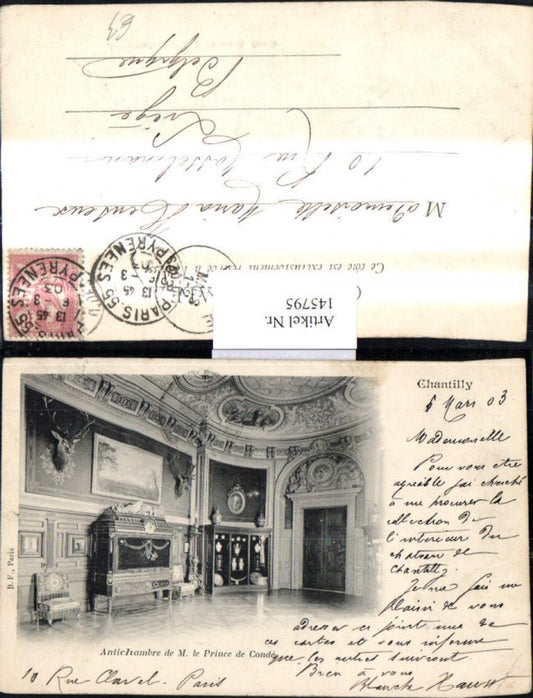 63
Belgique
Liége
10 Rue
Mademoiselle Maria
Ce côté est exclusivement réservé à
PARIS 55
PYRENEES
13 45
6 3
03
PARIS 55
PYRENEES
13 45
6 3
03
Artikel Nr.
145795
Chantilly
6 Mars 03
Mademoiselle
Pour vous etre
agréable j'ai cherché
à me procurer la
collection de
l'interieur du
chateau de
Chantilly
Je me fais un
plaisir de vous
adresser ci joint une de
ces cartes et vous informe
que les autres suivront
Bien à vous
Blanche
B. F., Paris
Antichambre de M. le Prince de Condé
10 Rue Clavel. Paris